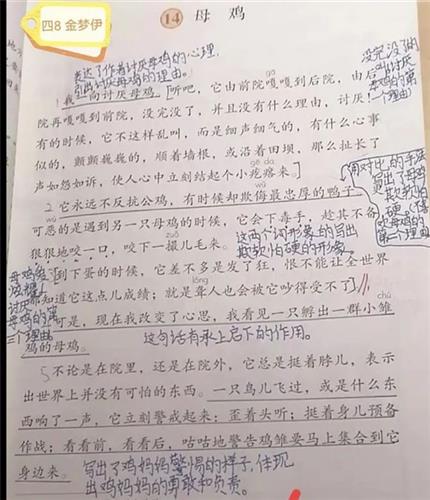 四8 金梦伊
14 母鸡
表达了作者讨厌母鸡的心理,
引出讨厌母鸡的理由。
没完没了的
叫(讨厌
母鸡的第
一个理由)
1我一向讨厌母鸡。[听吧,它由前院嘎嘎到后院,由后
gā
院再嘎嘎到前院,没完没了,并且没有什么理由,讨厌!
有的时候,它不这样乱叫,而是细声细气的,有什么心事
似的,颤颤巍巍的,顺着墙根,或沿着田坝,那么扯长了
gē da
声如怨如诉,使人心中立刻结起个小疙瘩来。]
2它永远不反抗公鸡,有时候却欺侮最忠厚的鸭子。
wǔ
可恶的是遇到另一只母鸡的时候,它会下毒手,趁其不备,
zuǒ
狠狠地咬一口,咬下一撮儿毛来。
这两个词形象的写出
欺软怕硬的形象。
用对比的手法
写出了母鸡
欺软怕
硬。(讨
厌母鸡的
第二个理由)
母鸡爱
炫耀!
讨厌
母鸡的第
三个理由
[到下蛋的时候,它差不多是发了狂,恨不能让全世界
lóng
都知道它这点儿成绩;就是聋人也会被它吵得受不了。]
chú
可是,现在我改变了心思,我看见一只孵出一群小雏
鸡的母鸡。
这句话有承上启下的作用。
5不论是在院里,还是在院外,它总是挺着脖儿,表示
出世界上并没有可怕的东西。一只鸟儿飞过,或是什么东
西响了一声,它立刻警戒起来:歪着头听;挺着身儿预备
作战;看看前,看看后,咕咕地警告鸡雏要马上集合到它
身边来。
写出了鸡妈妈警惕的样子,体现
出鸡妈妈的勇敢和负责。